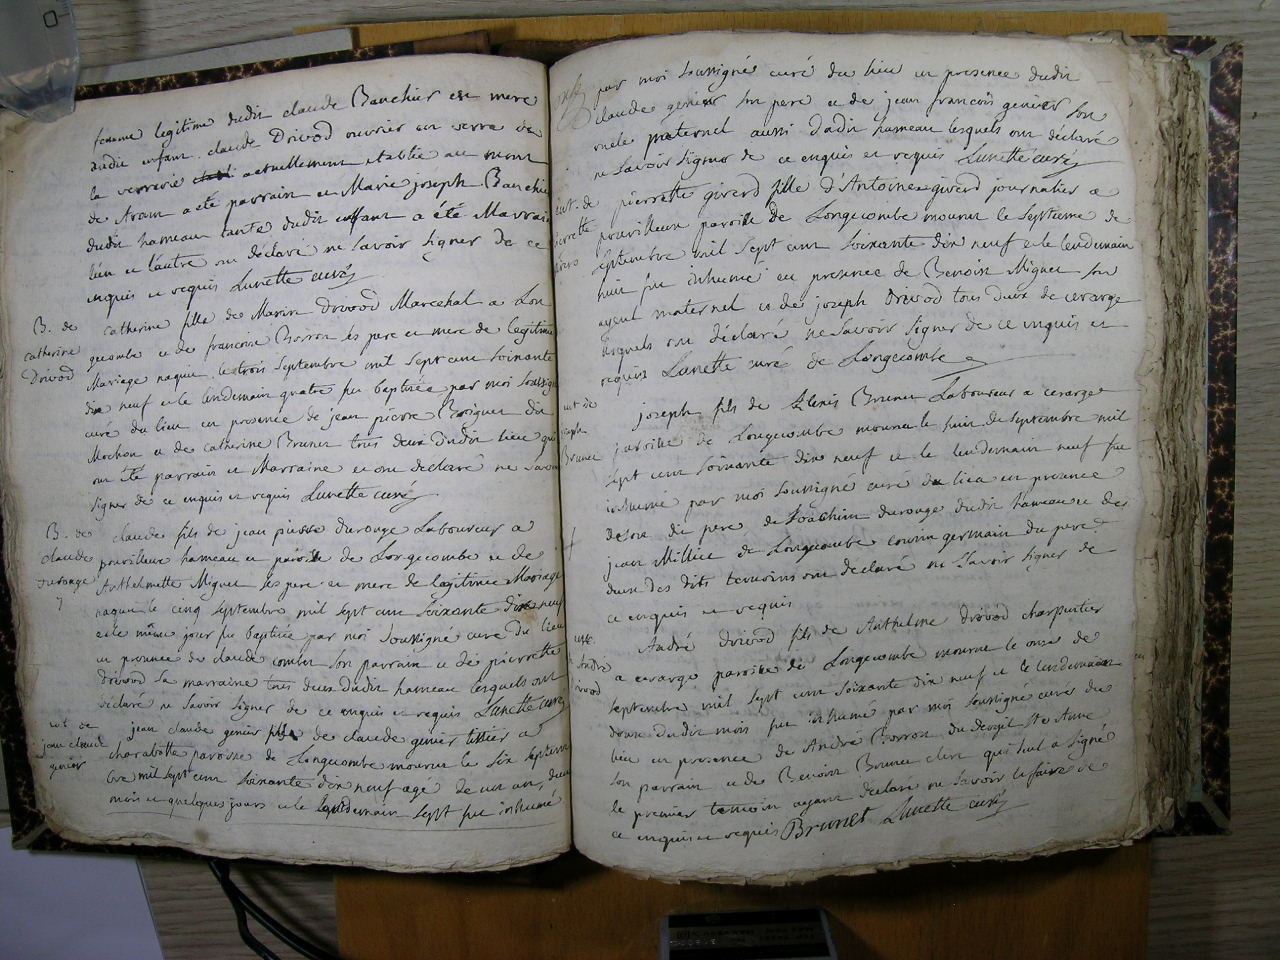 femme legitime dudit claude Banchier en mere
dudit enfant. claude Drivod ouvrier en verre de
la verrerie actuellement etablie au mont
de Arain a été parrain et Marie joseph Banchi
dudit hameau tante dudit enfant a été Marrai
lun et lautre ont déclaré ne Savoir signer de ce
enquis et requis Lunette curé
B. de
catherine
Drivod
catherine fille de Marin Drivod Marechal a Lon
gecombe et de francoise Borron ses pere et mere de legitime
Mariage naquit le trois Septembre mil sept cent soixante
dix neuf et le lendemain quatre fut baptisée par moi soussigné
curé du lieu en presence de jean pierre
Mochon et de catherine Brunet tous deux dudit lieu qui
ont été parrain et Marraine et ont déclaré ne savoir
signer de ce enquis et requis Lunette curé
B. de
claude
durouge
claude fils de jean pierre durouge Laboureur a
pourilleux hameau et paroisse de Longecombe et de
Anthelmette Miguet ses pere et mere de legitime Mariage
naquit le cinq septembre mil sept cent soixante dix neuf
et le même jour fut baptisée par moi soussigné curé du lieu
en presence de claude combet son parrain et de pierrette
drivod sa marraine tous deux dudit hameau lesquels ont
déclaré ne savoir signer de ce enquis et requis Lunette curé
jean claude
genier
jean claude genier fils de claude genier tissier a
charabotte paroisse de Longecombe mourut le six septem
bre mil sept cent soixante dix neuf agé de un an, deux
mois et quelques jours et le lendemain sept fut inhumé
par moi soussigné curé du lieu en presence dudit
claude genier son pere et de jean françois genier son
oncle maternel aussi dudit hameau lesquels ont déclaré
ne savoir signer de ce enquis et requis Lunette curé
pierrette girerd fille d'Antoine girerd journalier a
pourilleux paroisse de Longecombe mourut le septieme de
septembre mil sept cent soixante dix neuf et le lendemain
huit fut inhumé en presence de Benoit Miguet son
ayeul maternel et de joseph Drivod tous deux de cerarge
lesquels ont déclaré ne savoir signer de ce enquis et
requis Lunette curé de Longecombe
joseph
Brunet
joseph fils de Alexis Brunet Laboureur a cerarge
paroisse de Longecombe mourut le huit de septembre mil
sept cent soixante dix neuf et le lendemain neuf fut
inhumé par moi soussigné curé du lieu en presence
de son dit pere de Joachim durouge dudit hameau et de
jean Millier de Longecombe cousin germain du pere
deux des dits temoins ont déclaré ne savoir signer de
ce enquis et requis
André
drivod
André drivod fils de Anthelme drivod charpentier
a cerarge paroisse de Longecombe mourut le onze de
septembre mil sept cent soixante dix neuf et le lendemain
douze dudit mois fut inhumé par moi soussigné curé du
lieu en presence de André Borron du Ste Anne
son parrain et de Benoit Brunet clerc qui seul a signé
le premier temoin ayant déclaré ne savoir le faire de
ce enquis et requis Brunet Lunette curé